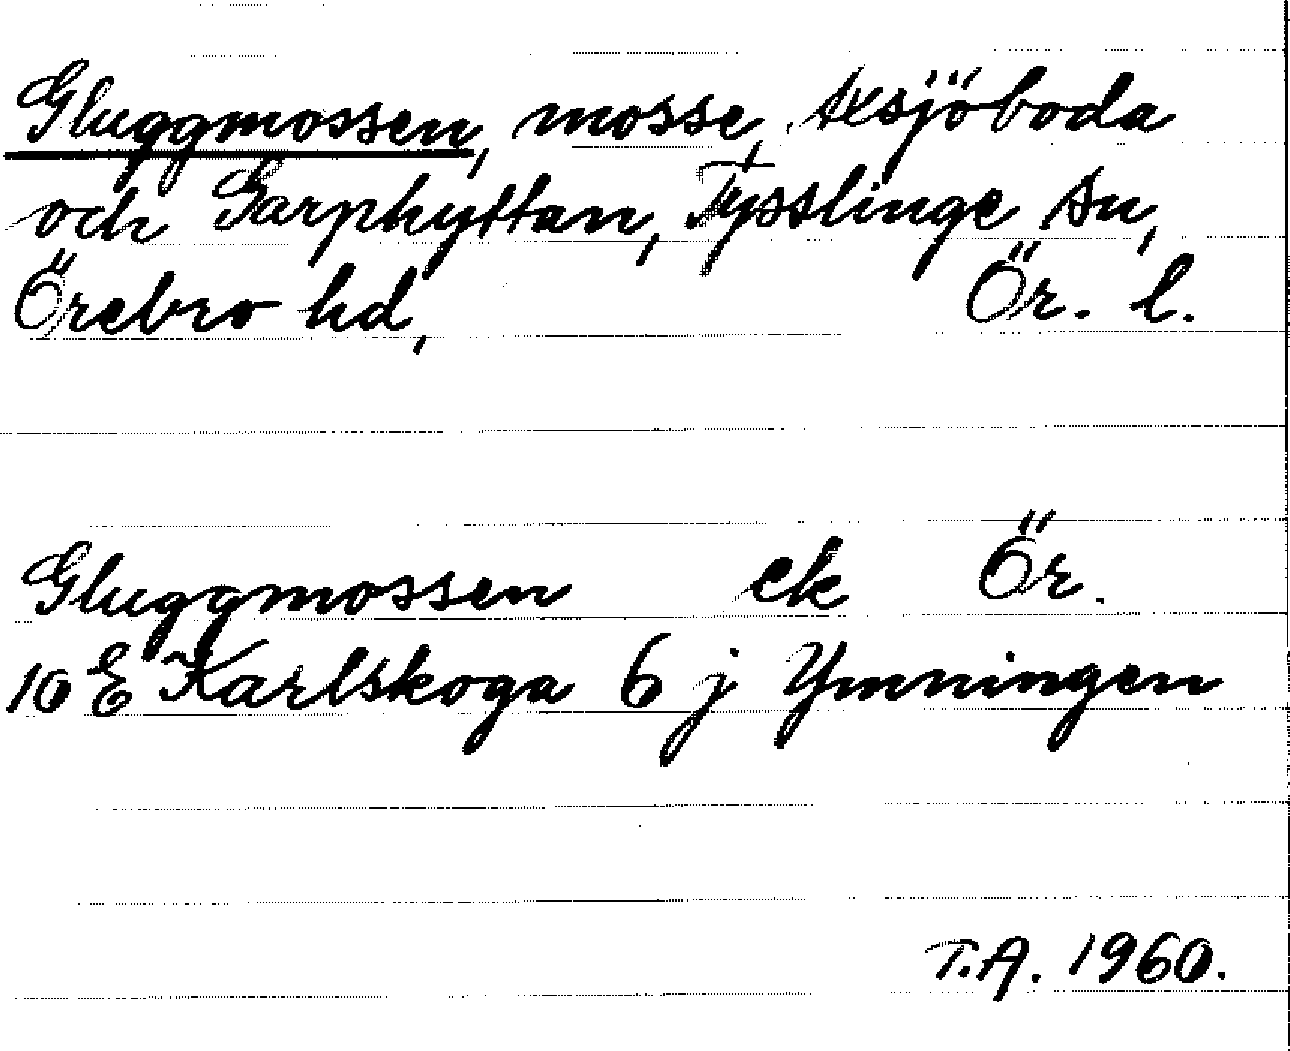 Gluggmossen, mosse, Axsjöboda
och Garphyttan, Tysslinge sn,
Örebro hd, Ör. l.
Gluggmossen ek Ör.
10 E Karlskoga 6 j Ymningen
T.A. 1960.